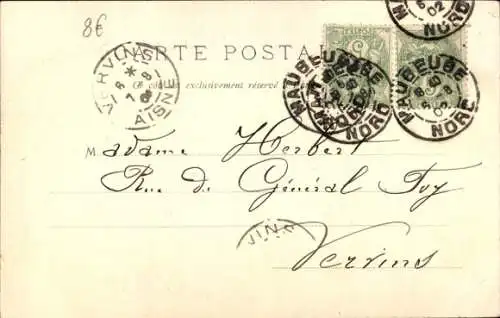 8€
CARTE POSTALE
Ce côté est exclusivement réservé
VERVINS
AISNE
MAUBEUGE
NORD
MAUBEUGE
NORD
NORD
Madame Herbert
Rue du Général Foy
Vervins